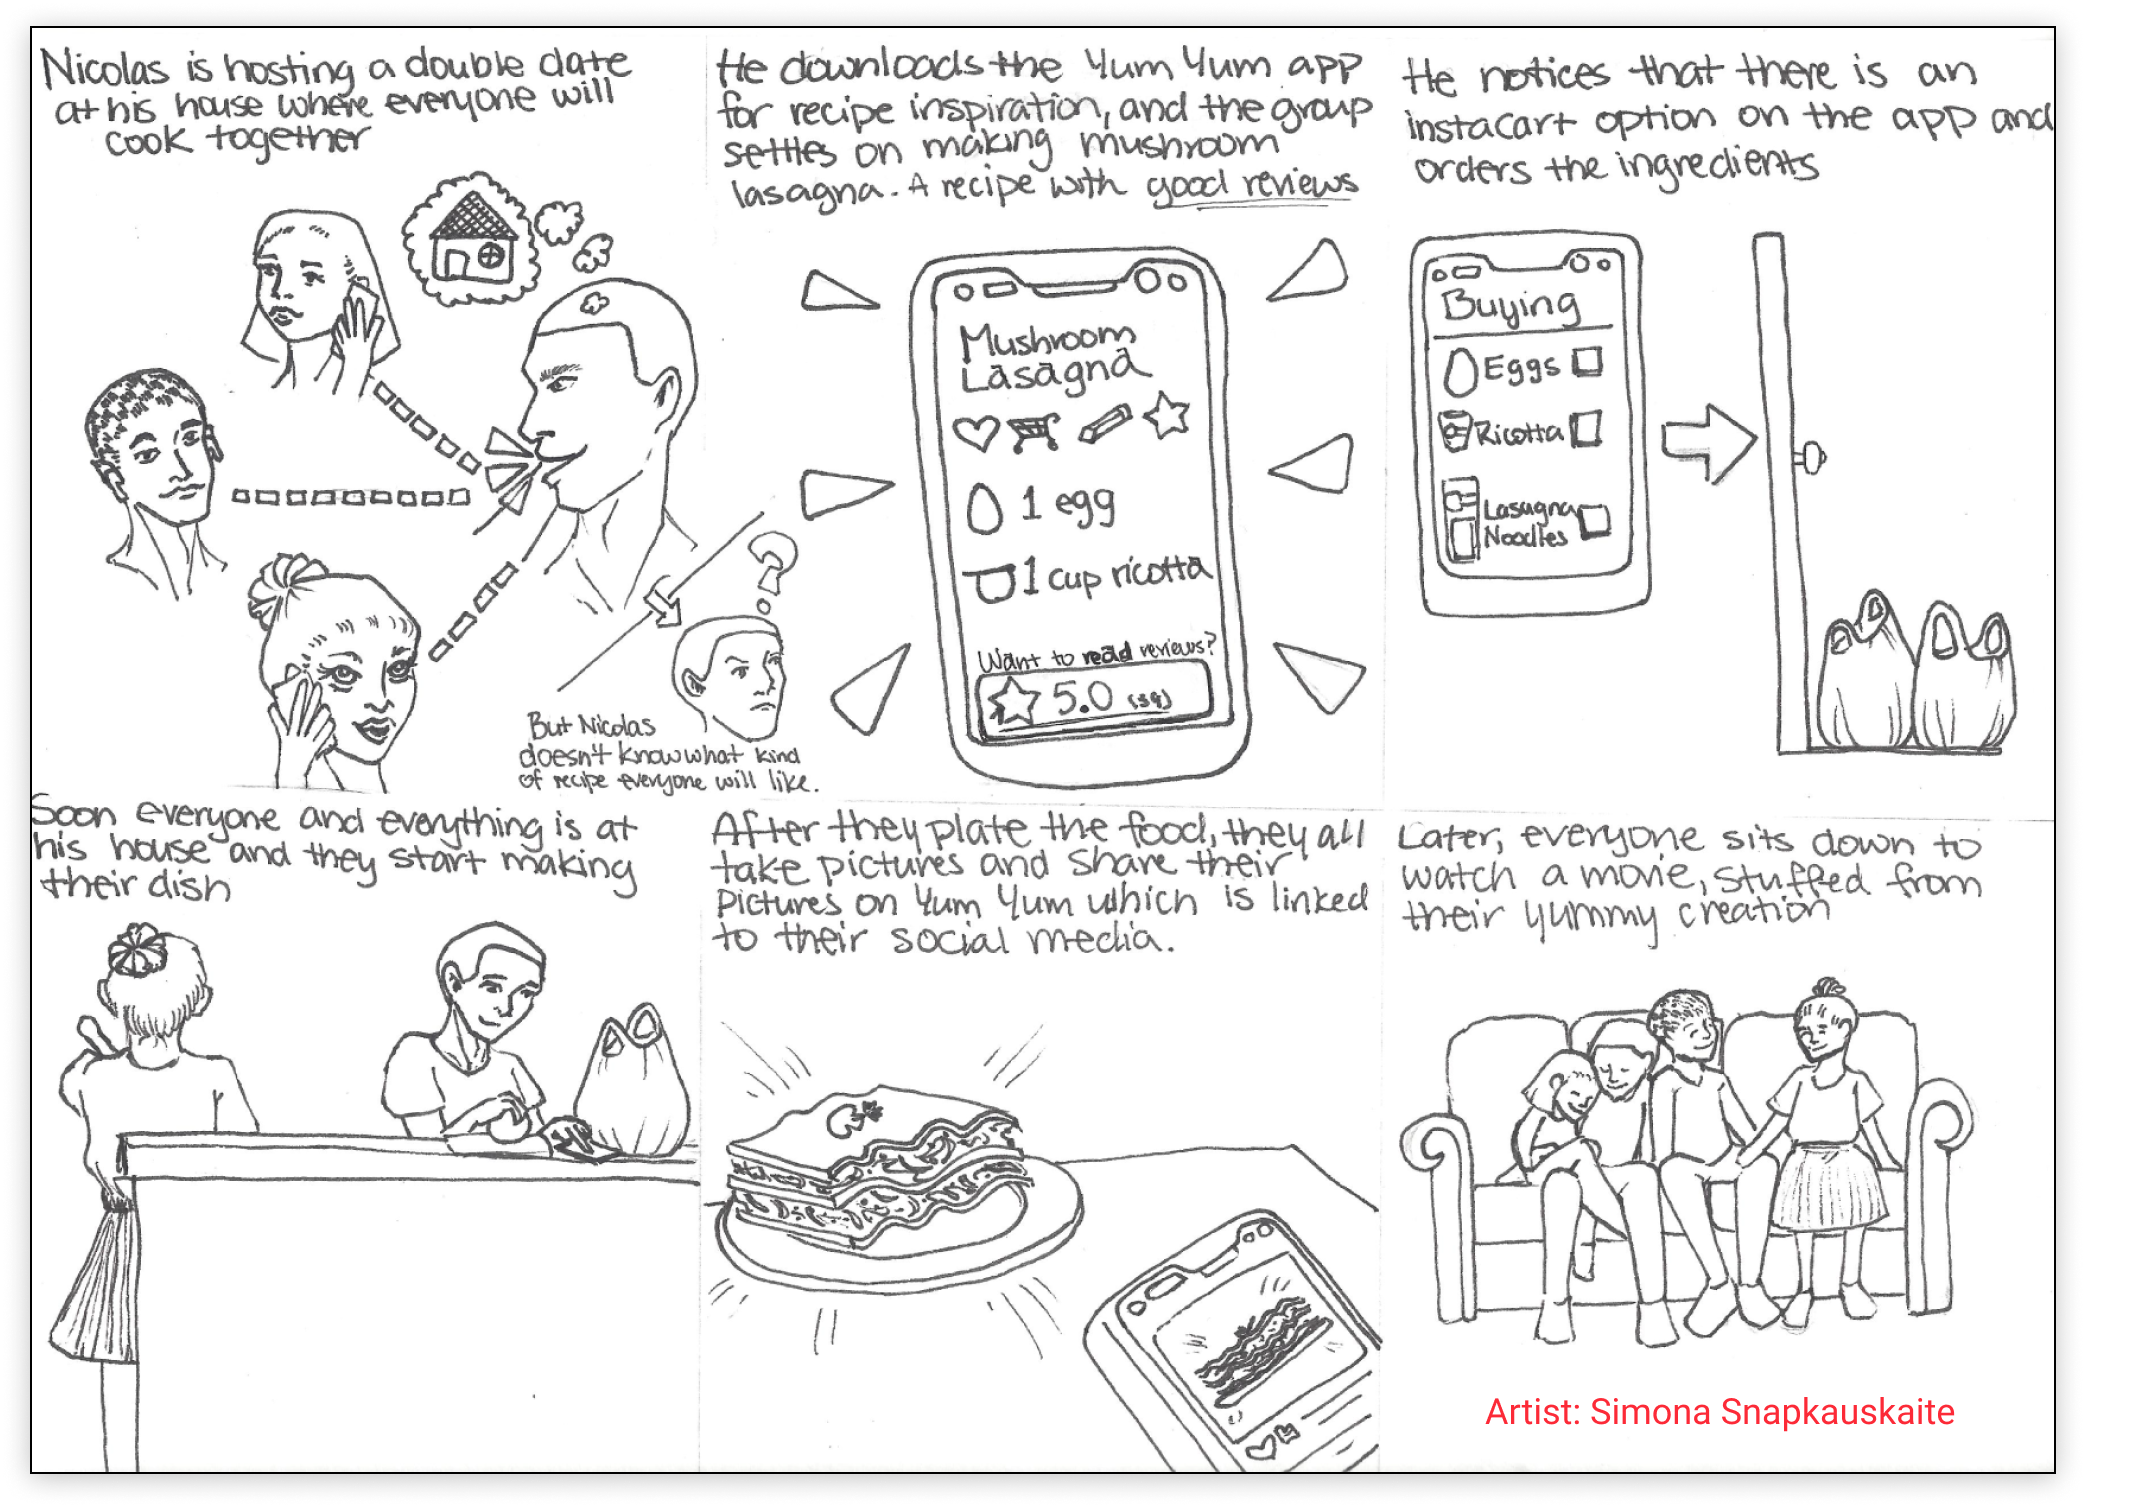 Nicolas is hosting a double date
at his house where everyone will
cook together
But Nicolas
doesn't know what kind
of recipe everyone will like.
He downloads the Yum Yum app
for recipe inspiration, and the group
settles on making mushroom
lasagna. A recipe with good reviews
Mushroom
Lasagna
1 egg
1 cup ricotta
Want to read reviews?
5.0
He notices that there is an
instacart option on the app and
orders the ingredients
Buying
Eggs
Ricotta
Lasagna
Noodles
Soon everyone and everything is at
his house and they start making
their dish
After they plate the food, they all
take pictures and share their
pictures on Yum Yum which is linked
to their social media.
Later, everyone sits down to
watch a movie, stuffed from
their yummy creation
Artist: Simona Snapkauskaite